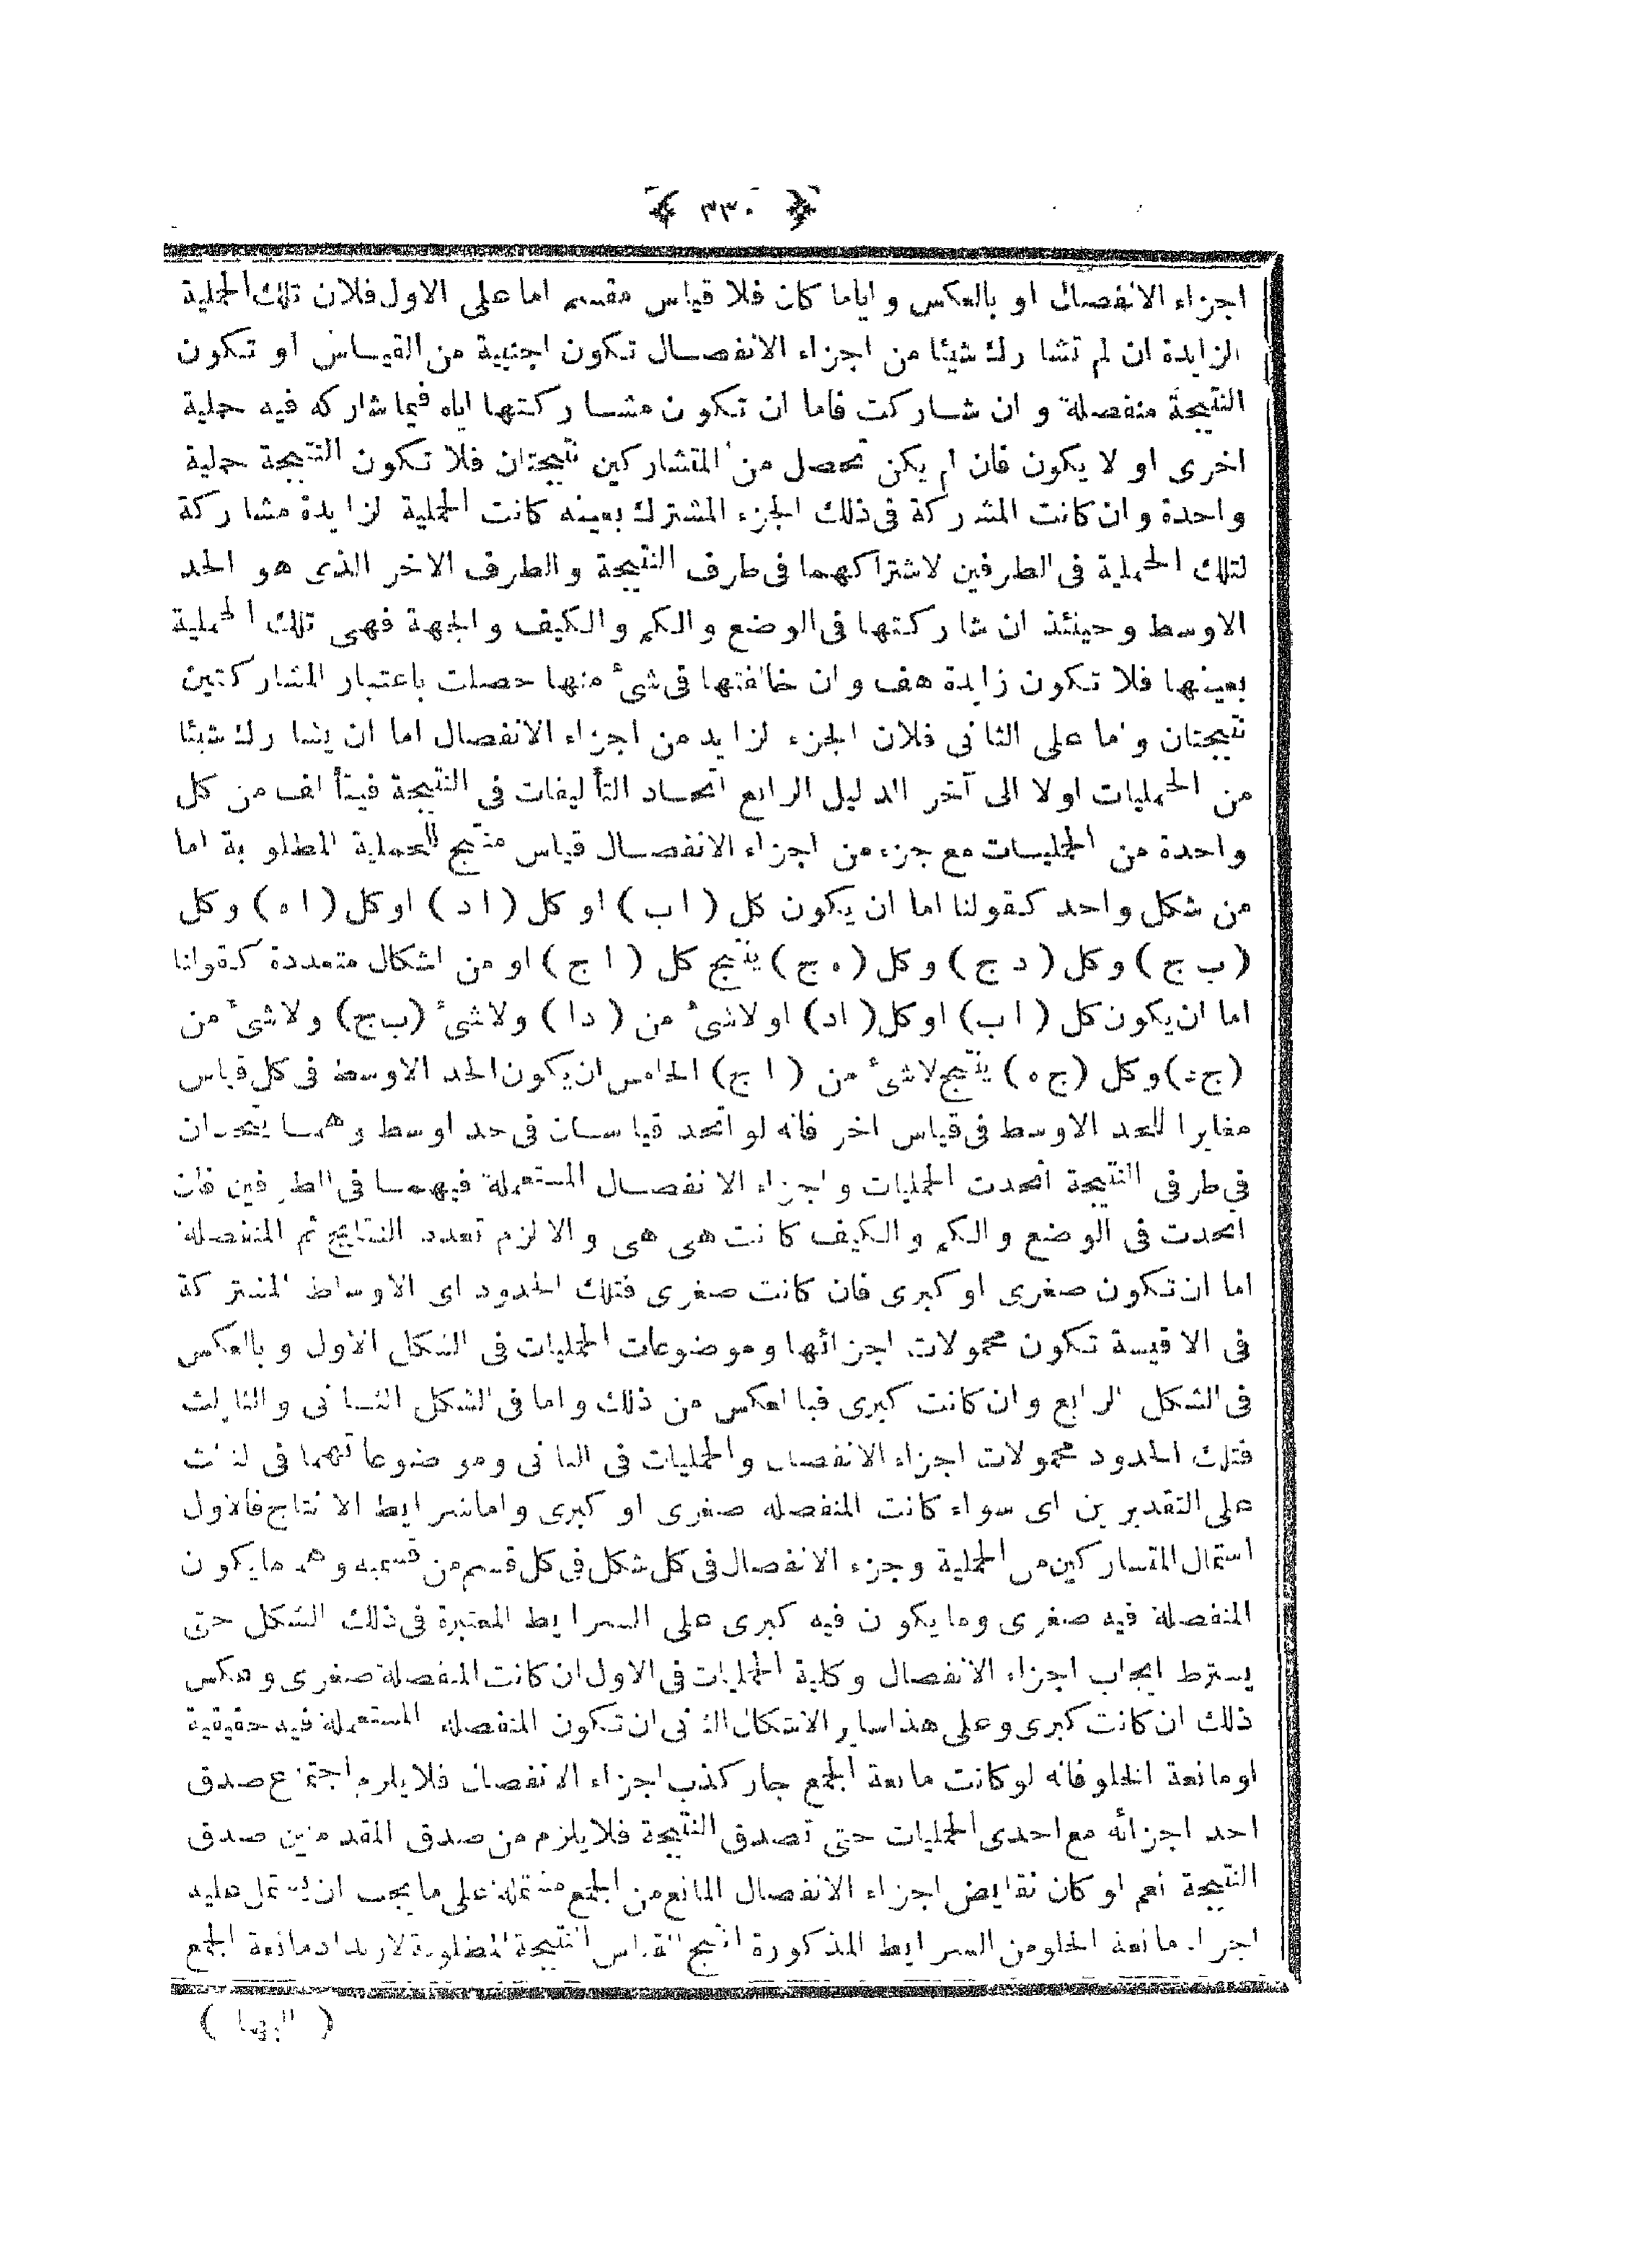 ﴿ ٣٣٠ ﴾
اجزاء الانفصال او بالعكس واياما كان فلا قياس مقسم اما على الاول فلان تلك الحملية
الزايدة ان لم تشارك شيئا من اجزاء الانفصال تكون اجنبية من القياس او تكون
النتيجة منفصلة وان شاركت فاما ان تكون مشاركتها اياه فيما شاركه فيه حملية
اخرى او لا يكون فان لم يكن تحصل من المتشاركين نتيجتان فلا تكون النتيجة حملية
واحدة وان كانت المشاركة فى ذلك الجزء المشترك بعينه كانت الحملية لزايدة مشاركة
لتلك الحملية فى الطرفين لاشتراكهما فى طرف النتيجة والطرف الاخر الذى هو الحد
الاوسط وحينئذ ان شاركتها فى الوضع والكم والكيف والجهة فهى تلك الحملية
بعينها فلا تكون زايدة هف وان خالفتها فى شئ منها حصلت باعتبار المشاركتين
نتيجتان واما على الثانى فلان الجزء لزايد من اجزاء الانفصال اما ان يشارك شيئا
من الحمليات اولا الى آخر الدليل الرابع اتحاد التأليفات فى النتيجة فيتألف من كل
واحدة من الحمليات مع جزء من اجزاء الانفصال قياس منتج للحملية المطلوبة اما
من شكل واحد كقولنا اما ان يكون كل ( اب ) او كل ( اد ) او كل ( اه ) وكل
( ب ج ) وكل ( د ج ) وكل ( ه ج ) ينتج كل ( ا ج ) او من اشكال متعددة كقولنا
اما ان يكون كل ( اب ) او كل ( اد ) او لاشئ من ( دا ) ولاشئ ( ب ج ) ولاشئ من
( ج د ) وكل ( ج ه ) ينتج لاشئ من ( ا ج ) الخامس ان يكون الحد الاوسط فى كل قياس
مغايرا للحد الاوسط فى قياس اخر فانه لو اتحد قياسان فى حد اوسط وهما يتحدان
فى طرفى النتيجة اتحدت الحمليات واجزاء الانفصال المستعملة فيهما فى الطرفين فان
اتحدت فى الوضع والكم والكيف كانت هى هى والا لزم تعدد النتايج ثم المنفصلة
اما ان تكون صغرى او كبرى فان كانت صغرى فتلك الحدود اى الاوساط المشتركة
فى الاقيسة تكون محمولات اجزائها وموضوعات الحمليات فى الشكل الاول وبالعكس
فى الشكل الرابع وان كانت كبرى فبالعكس من ذلك واما فى الشكل الثانى والثالث
فتلك الحدود محمولات اجزاء الانفصال والحمليات فى الثانى وموضوعاتهما فى لثالث
على التقديرين اى سواء كانت المنفصله صغرى او كبرى واما شرايط الانتاج فالاول
اشتمال المتشاركين من الحملية وجزء الانفصال فى كل شكل فى كل قسم من قسميه وهو ما يكون
المنفصلة فيه صغرى وما يكون فيه كبرى على الشرايط المعتبرة فى ذلك الشكل حتى
يشترط ايجاب اجزاء الانفصال وكلية الحمليات فى الاول ان كانت المنفصلة صغرى وعكس
ذلك ان كانت كبرى وعلى هذا ساير الاشكال الثانى ان تكون المنفصله المستعملة فيه حقيقية
او مانعة الخلو فانه لو كانت مانعة الجمع جاز كذب اجزاء الانفصال فلا يلزم اجتماع صدق
احد اجزائه مع احدى الحمليات حتى تصدق النتيجة فلا يلزم من صدق المقدمتين صدق
النتيجة نعم لو كان نقايض اجزاء الانفصال المانع من الجمع مشتملة على ما يجب ان يشتمل عليه
اجزاء مانعة الخلو من الشرايط المذكورة انتج القياس النتيجة المطلوبة لارتداد مانعة الجمع
( اليها )